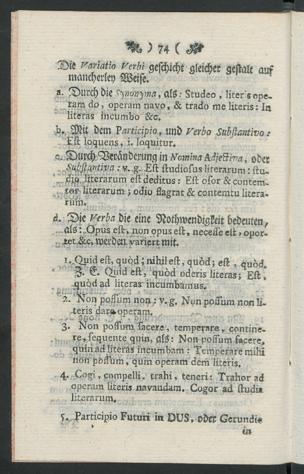 ) 74 (
Die Variatio Verbi geschicht gleicher gestalt auf
mancherley Weise.
a. Durch die Synonyma, als: Studeo, literis ope-
ram do, operam navo, & trado me literis: In
literas incumbo &c.
b. Mit dem Participio, und Verbo Substantivo:
Est loquens, i. loquitur.
c. Durch Veränderung in Nomina Adjectiva, oder
Substantiva: v. g. Est studiosus literarum: stu-
dio literarum est deditus: Est osor & contem-
tor literarum; odio flagrat & contemtu litera-
rum.
d. Die Verba die eine Nothwendigkeit bedeuten,
als: Opus est, non opus est, necesse est, opor-
tet &c. werden variert mit.
1. Quid est, quòd; nihil est, quòd; est, quòd.
Z. E. Quid est, quòd oderis literas; Est,
quòd ad literas incumbamus.
2. Non possum non: v. g. Non possum non li-
teris dare operam.
3. Non possum facere, temperare, contine-
re, sequente quin, als: Non possum facere,
quin ad literas incumbam: Temperare mihi
non possum, quin operam dem literis.
4. Cogi, compelli, trahi, teneri: Trahor ad
operam literis navandam. Cogor ad studia
literarum.
5. Participio Futuri in DUS, oder Gerundio
in